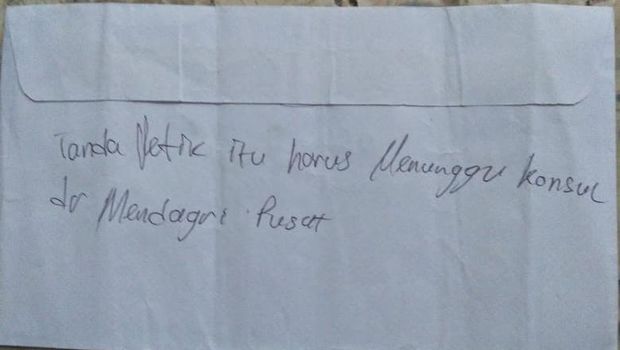 Tanda Petik itu harus Menunggu konsul
dr Mendagri Pusat